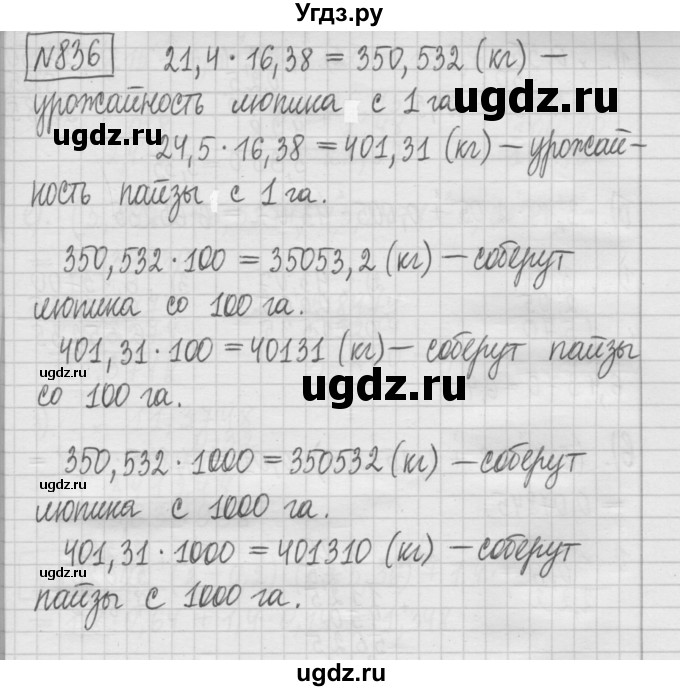 Угдз.ру
№836 21,4 · 16,38 = 350,532 (кг) –
урожайность люпина с 1 га
ugdz.ru
ugdz.ru
24,5 · 16,38 = 401,31 (кг) – урожай-
ность пайзы с 1 га.
ugdz.ru
350,532 · 100 = 35053,2 (кг) – соберут
люпина со 100 га.
401,31 · 100 = 40131 (кг) – соберут пайзы
ugdz.ru
ugdz.ru
со 100 га.
350,532 · 1000 = 350532 (кг) – соберут
ugdz.ru
люпина с 1000 га.
401,31 · 1000 = 401310 (кг) – соберут
ugdz.ru
пайзы с 1000 га.
ugdz.ru